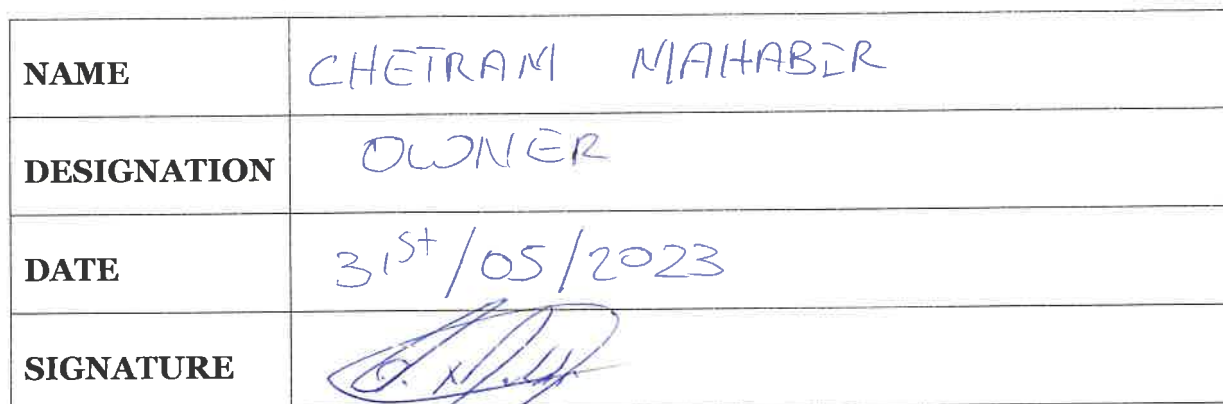 NAME CHETRAM MAHABIR
DESIGNATION OWNER
DATE 31st/05/2023
SIGNATURE